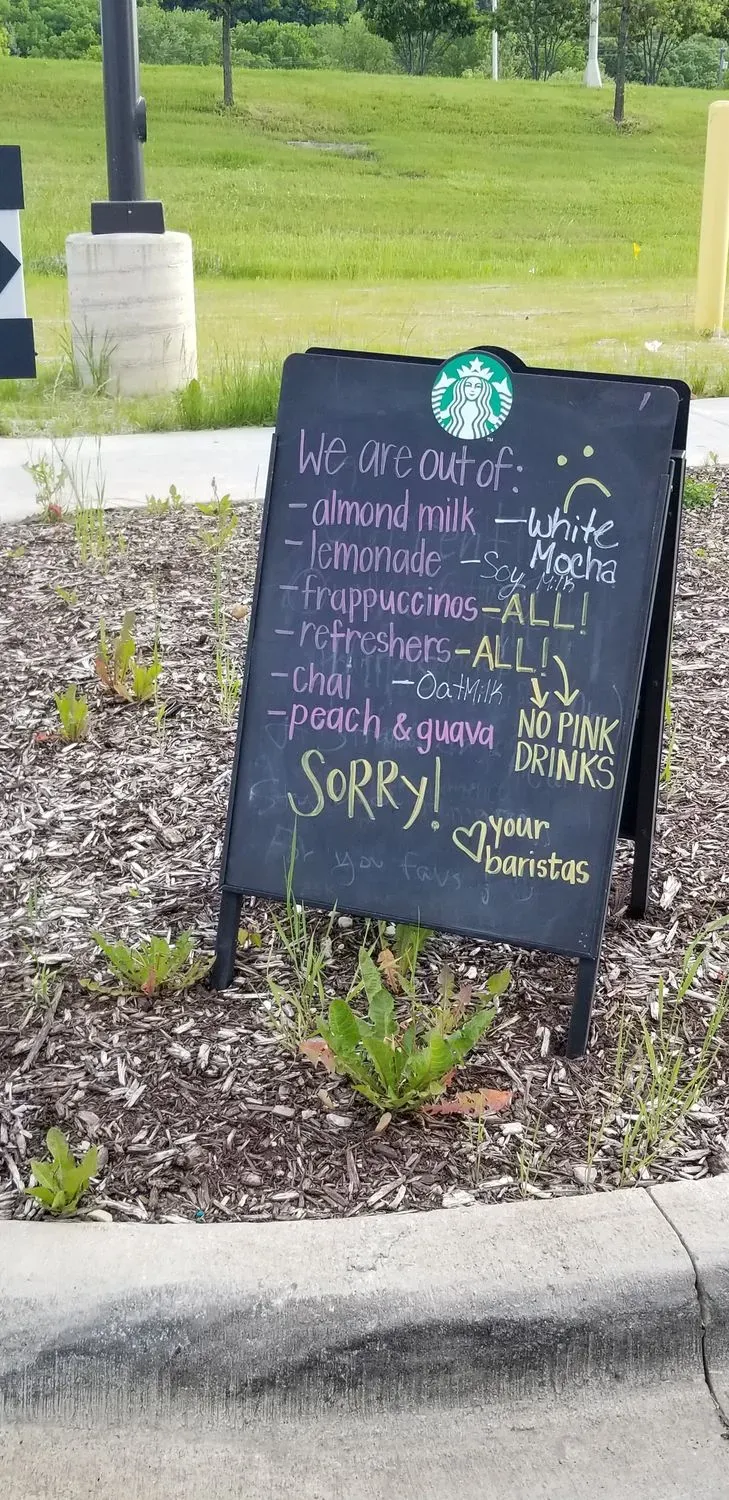 We are out of:
- almond milk - White Mocha
- lemonade - Soy Milk
- frappuccinos - ALL!
- refreshers - ALL!
- chai - Oat Milk
- peach & guava
NO PINK
DRINKS
SORRY!
♡ your
baristas
for you favs
TM